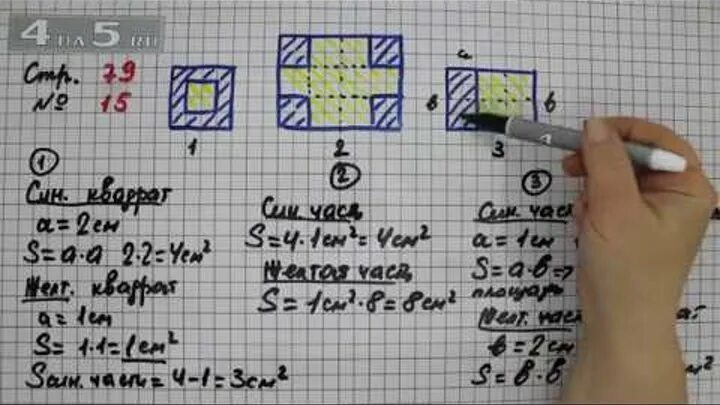 4 НА 5 RU
Стр. 79
№ 15
а
в в
1 2 3
1
Син. квадрат
a = 2 см
S = a·a 2·2=4см²
Желт. квадрат
a = 1см
S = 1·1=1см²
Sсин. части = 4-1=3см²
2
Син. часть
S=4·1см²=4см²
Желтая часть
S = 1см²·8=8см²
3
Син. част
a = 1см
S = a·в =>
площадь
Желт. част ат
в = 2см
S = в·в м²